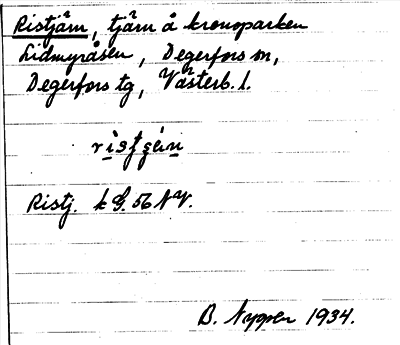 Ristjärn, tjärn å kronoparken
Lidmyråsen, Degerfors sn,
Degerfors tg, Västerb. l.
Ristj. k G. 56 NV.
B. Nygren 1934.